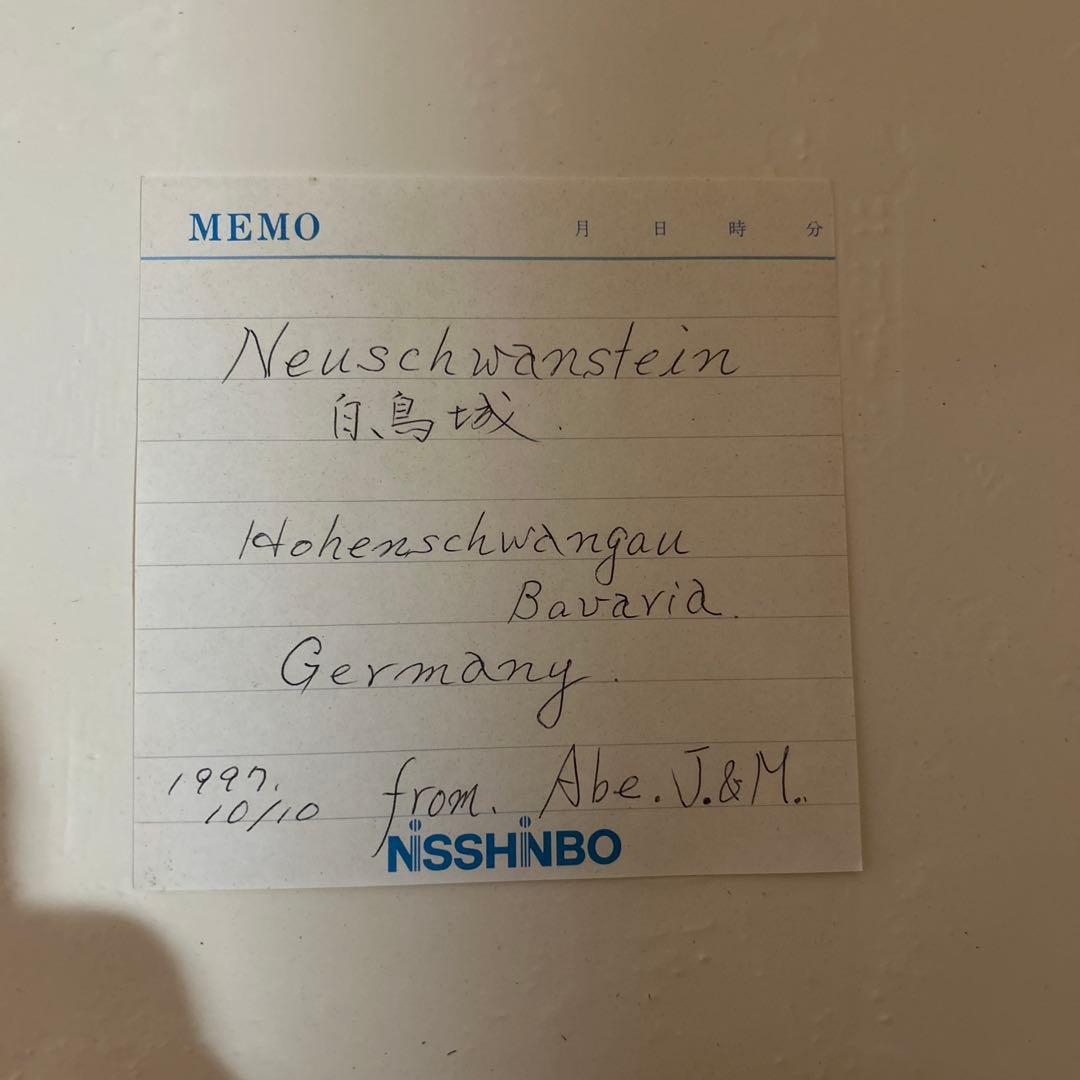 MEMO 月 日 時 分
Neuschwanstein
白鳥城.
Hohenschwangau
Bavaria.
Germany.
1997.
10/10
from. Abe. J.&M.
NISSHINBO